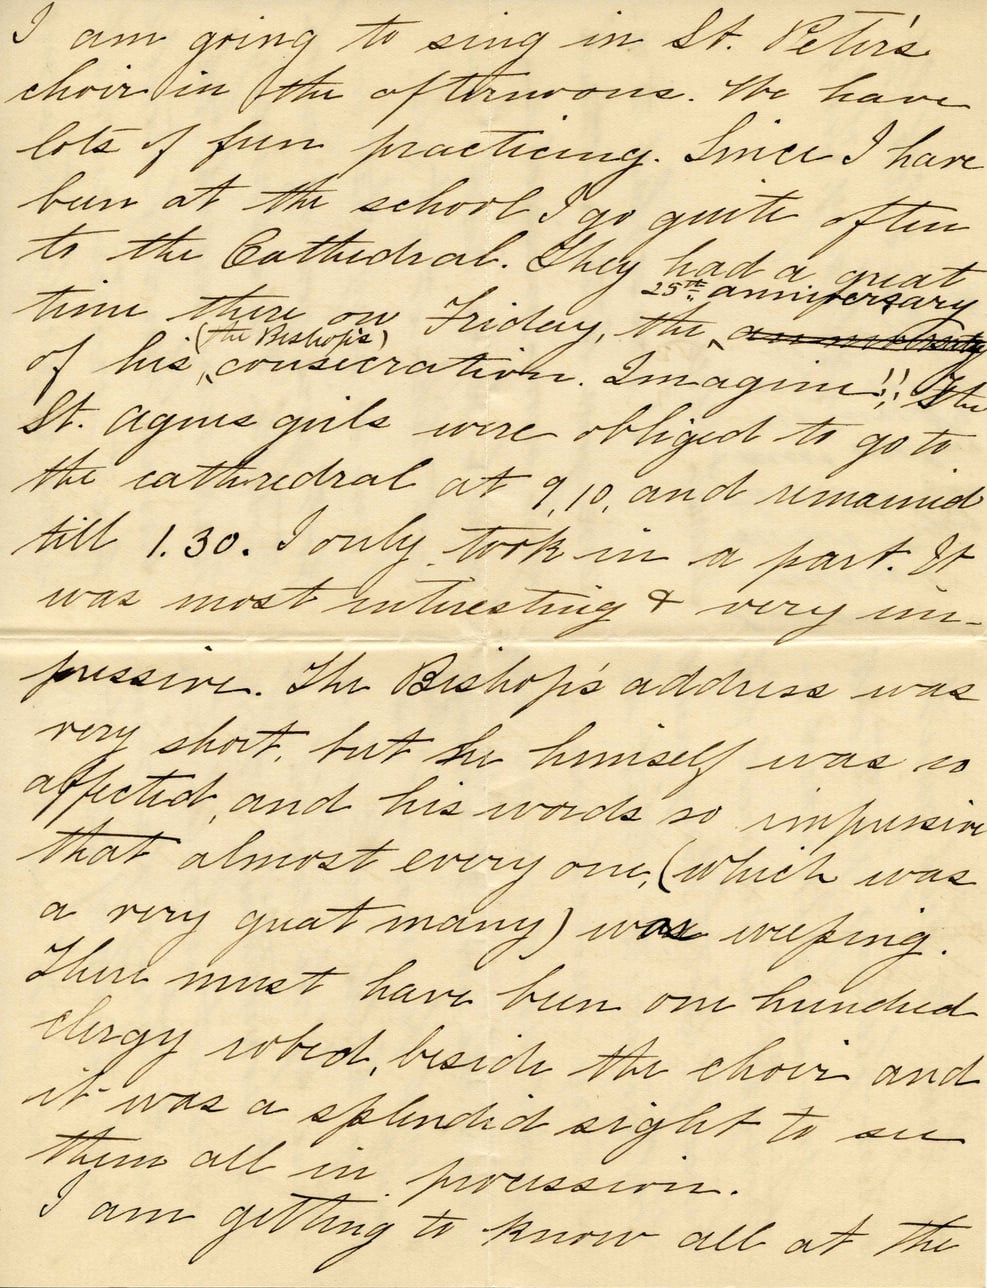 I am going to sing in St. Peter's
choir in the afternoons. We have
lots of fun practicing. Since I have
been at the school I go quite often
to the Cathedral. They had a great
time there on Friday, the 25th anniversary
of his (the Bishop's) consecration. Imagine!! The
St. Agnes girls were obliged to go to
the cathredral at 9,10, and remained
till 1.30. I only took in a part. It
was most interesting & very im-
pressive. The Bishop's address was
very short, but he himself was so
affected, and his words so impressive
that almost every one, (which was
a very great many) was weeping.
There must have been one hundred
clergy robed, beside the choir and
it was a splendid sight to see
them all in procession.
I am getting to know all at the